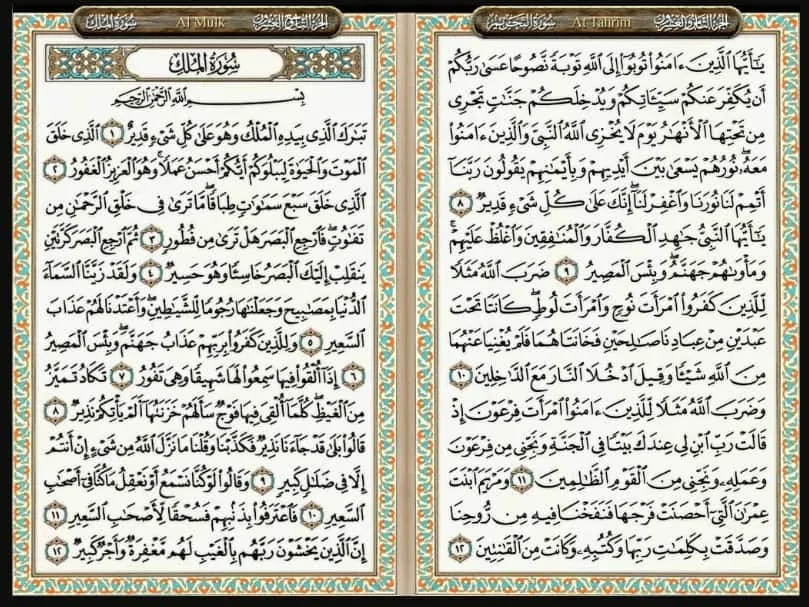 الجزء الثامن والعشرون
At Tahrim
سورة التحريم
يَـٰٓأَيُّهَا ٱلَّذِينَ ءَامَنُوا۟ تُوبُوٓا۟ إِلَى ٱللَّهِ تَوْبَةً نَّصُوحًا عَسَىٰ رَبُّكُمْ
أَن يُكَفِّرَ عَنكُمْ سَيِّـَٔاتِكُمْ وَيُدْخِلَكُمْ جَنَّـٰتٍ تَجْرِى
مِن تَحْتِهَا ٱلْأَنْهَـٰرُ يَوْمَ لَا يُخْزِى ٱللَّهُ ٱلنَّبِىَّ وَٱلَّذِينَ ءَامَنُوا۟
مَعَهُۥ نُورُهُمْ يَسْعَىٰ بَيْنَ أَيْدِيهِمْ وَبِأَيْمَـٰنِهِمْ يَقُولُونَ رَبَّنَآ
أَتْمِمْ لَنَا نُورَنَا وَٱغْفِرْ لَنَآ إِنَّكَ عَلَىٰ كُلِّ شَىْءٍ قَدِيرٌ ٨
يَـٰٓأَيُّهَا ٱلنَّبِىُّ جَـٰهِدِ ٱلْكُفَّارَ وَٱلْمُنَـٰفِقِينَ وَٱغْلُظْ عَلَيْهِمْ
وَمَأْوَىٰهُمْ جَهَنَّمُ وَبِئْسَ ٱلْمَصِيرُ ٩ ضَرَبَ ٱللَّهُ مَثَلًا
لِّلَّذِينَ كَفَرُوا۟ ٱمْرَأَتَ نُوحٍ وَٱمْرَأَتَ لُوطٍ كَانَتَا تَحْتَ
عَبْدَيْنِ مِنْ عِبَادِنَا صَـٰلِحَيْنِ فَخَانَتَاهُمَا فَلَمْ يُغْنِيَا عَنْهُمَا
مِنَ ٱللَّهِ شَيْـًٔا وَقِيلَ ٱدْخُلَا ٱلنَّارَ مَعَ ٱلدَّٰخِلِينَ ١٠
وَضَرَبَ ٱللَّهُ مَثَلًا لِّلَّذِينَ ءَامَنُوا۟ ٱمْرَأَتَ فِرْعَوْنَ إِذْ
قَالَتْ رَبِّ ٱبْنِ لِى عِندَكَ بَيْتًا فِى ٱلْجَنَّةِ وَنَجِّنِى مِن فِرْعَوْنَ
وَعَمَلِهِۦ وَنَجِّنِى مِنَ ٱلْقَوْمِ ٱلظَّـٰلِمِينَ ١١ وَمَرْيَمَ ٱبْنَتَ
عِمْرَٰنَ ٱلَّتِىٓ أَحْصَنَتْ فَرْجَهَا فَنَفَخْنَا فِيهِ مِن رُّوحِنَا
وَصَدَّقَتْ بِكَلِمَـٰتِ رَبِّهَا وَكُتُبِهِۦ وَكَانَتْ مِنَ ٱلْقَـٰنِتِينَ ١٢
الجزء التاسع والعشرون
Al Mulk
سورة الملك
سُورَةُ المُلْكِ
بِسْمِ ٱللَّهِ ٱلرَّحْمَـٰنِ ٱلرَّحِيمِ
تَبَـٰرَكَ ٱلَّذِى بِيَدِهِ ٱلْمُلْكُ وَهُوَ عَلَىٰ كُلِّ شَىْءٍ قَدِيرٌ ١ ٱلَّذِى خَلَقَ
ٱلْمَوْتَ وَٱلْحَيَوٰةَ لِيَبْلُوَكُمْ أَيُّكُمْ أَحْسَنُ عَمَلًا وَهُوَ ٱلْعَزِيزُ ٱلْغَفُورُ ٢
ٱلَّذِى خَلَقَ سَبْعَ سَمَـٰوَٰتٍ طِبَاقًا مَّا تَرَىٰ فِى خَلْقِ ٱلرَّحْمَـٰنِ مِن
تَفَـٰوُتٍ فَٱرْجِعِ ٱلْبَصَرَ هَلْ تَرَىٰ مِن فُطُورٍ ٣ ثُمَّ ٱرْجِعِ ٱلْبَصَرَ كَرَّتَيْنِ
يَنقَلِبْ إِلَيْكَ ٱلْبَصَرُ خَاسِئًا وَهُوَ حَسِيرٌ ٤ وَلَقَدْ زَيَّنَّا ٱلسَّمَآءَ
ٱلدُّنْيَا بِمَصَـٰبِيحَ وَجَعَلْنَـٰهَا رُجُومًا لِّلشَّيَـٰطِينِ وَأَعْتَدْنَا لَهُمْ عَذَابَ
ٱلسَّعِيرِ ٥ وَلِلَّذِينَ كَفَرُوا۟ بِرَبِّهِمْ عَذَابُ جَهَنَّمَ وَبِئْسَ ٱلْمَصِيرُ
٦ إِذَآ أُلْقُوا۟ فِيهَا سَمِعُوا۟ لَهَا شَهِيقًا وَهِىَ تَفُورُ ٧ تَكَادُ تَمَيَّزُ
مِنَ ٱلْغَيْظِ كُلَّمَآ أُلْقِىَ فِيهَا فَوْجٌ سَأَلَهُمْ خَزَنَتُهَآ أَلَمْ يَأْتِكُمْ نَذِيرٌ ٨
قَالُوا۟ بَلَىٰ قَدْ جَآءَنَا نَذِيرٌ فَكَذَّبْنَا وَقُلْنَا مَا نَزَّلَ ٱللَّهُ مِن شَىْءٍ إِنْ أَنتُمْ
إِلَّا فِى ضَلَـٰلٍ كَبِيرٍ ٩ وَقَالُوا۟ لَوْ كُنَّا نَسْمَعُ أَوْ نَعْقِلُ مَا كُنَّا فِىٓ أَصْحَـٰبِ
ٱلسَّعِيرِ ١٠ فَٱعْتَرَفُوا۟ بِذَنۢبِهِمْ فَسُحْقًا لِّأَصْحَـٰبِ ٱلسَّعِيرِ ١١
إِنَّ ٱلَّذِينَ يَخْشَوْنَ رَبَّهُم بِٱلْغَيْبِ لَهُم مَّغْفِرَةٌ وَأَجْرٌ كَبِيرٌ ١٢